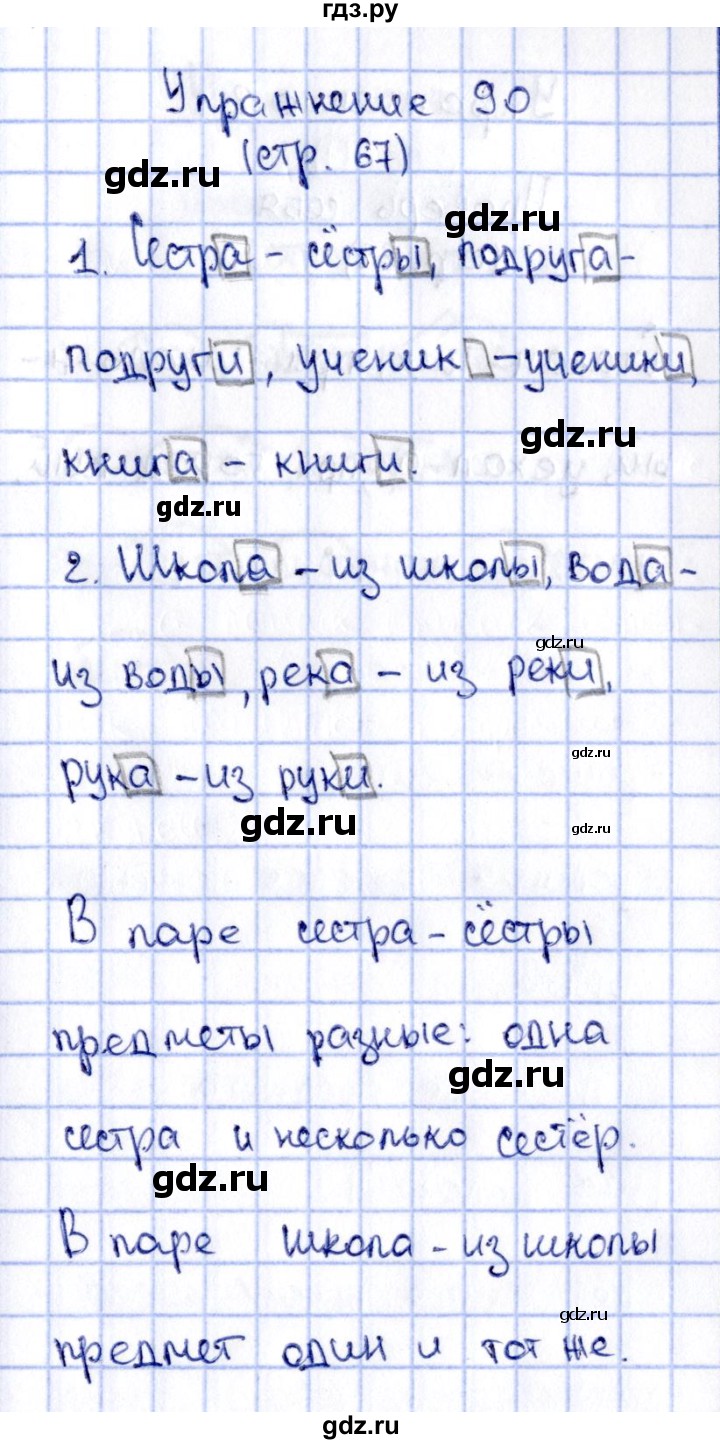 гдз.ру
Упражнение 90
gdz.ru
(стр. 67)
gdz.ru
1. Сестра - сёстры, подруга-
подруги, ученик -ученики,
gdz.ru
книга - книги.
gdz.ru
2. Школа - из школы, вода-
gdz.ru
из воды, река - из реки,
gdz.ru
рука -из руки.
gdz.ru
gdz.ru
В паре сестра - сёстры
предметы разные: одна
gdz.ru
сестра и несколько сестёр.
gdz.ru
В паре школа - из школы
gdz.ru
предмет один и тот же.
gdz.ru